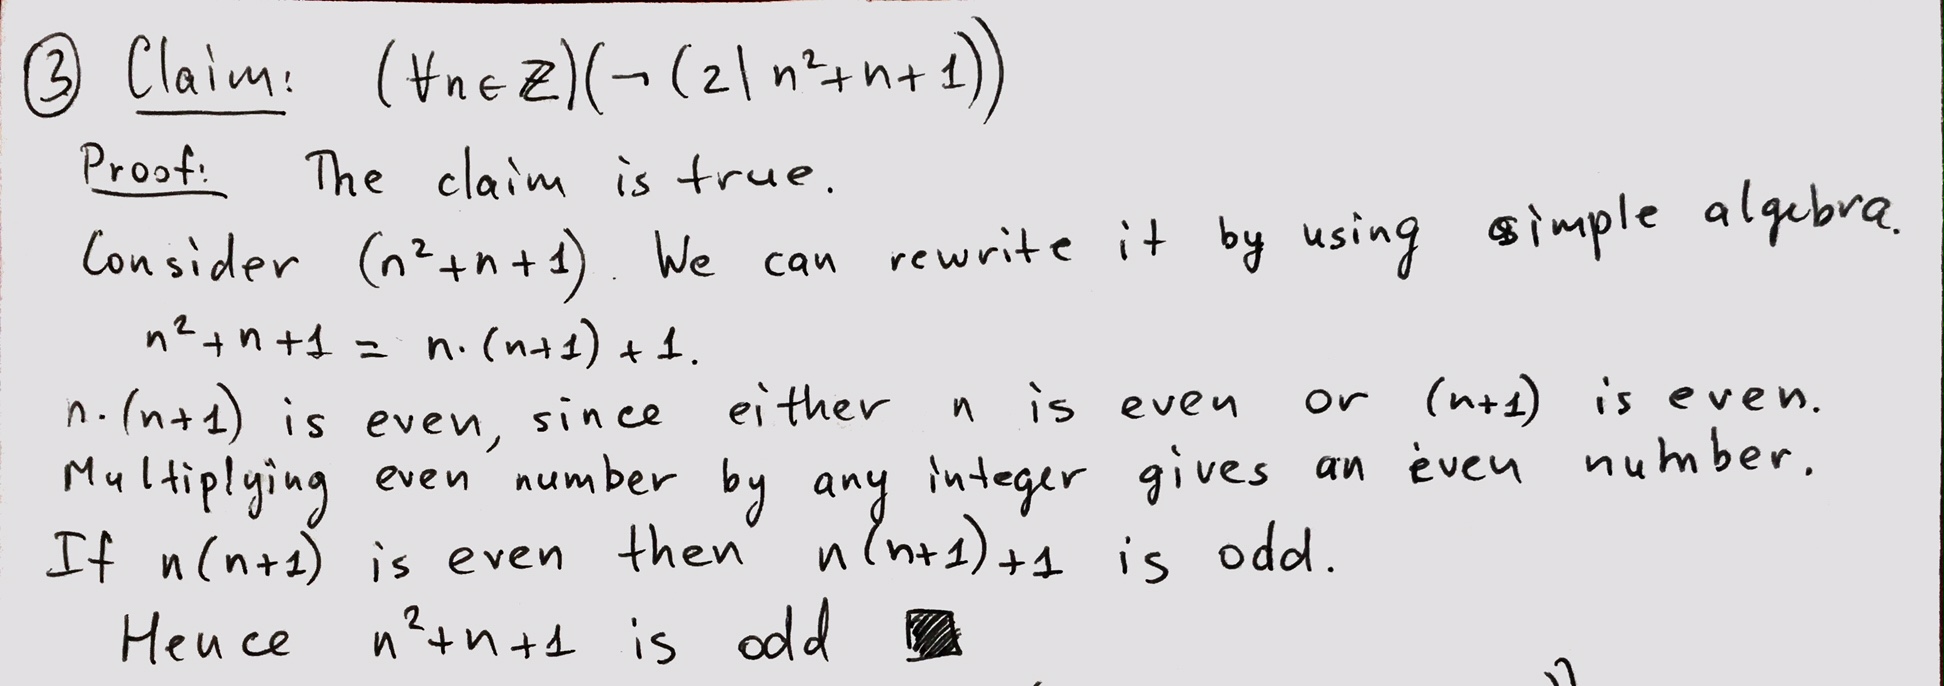 ③ Claim: (∀n∈ℤ)(¬(2|n²+n+1))
Proof: The claim is true.
Consider (n²+n+1). We can rewrite it by using simple algebra.
n²+n+1 = n·(n+1)+1.
n·(n+1) is even, since either n is even or (n+1) is even.
Multiplying even number by any integer gives an even number.
If n(n+1) is even then n(n+1)+1 is odd.
Hence n²+n+1 is odd ■